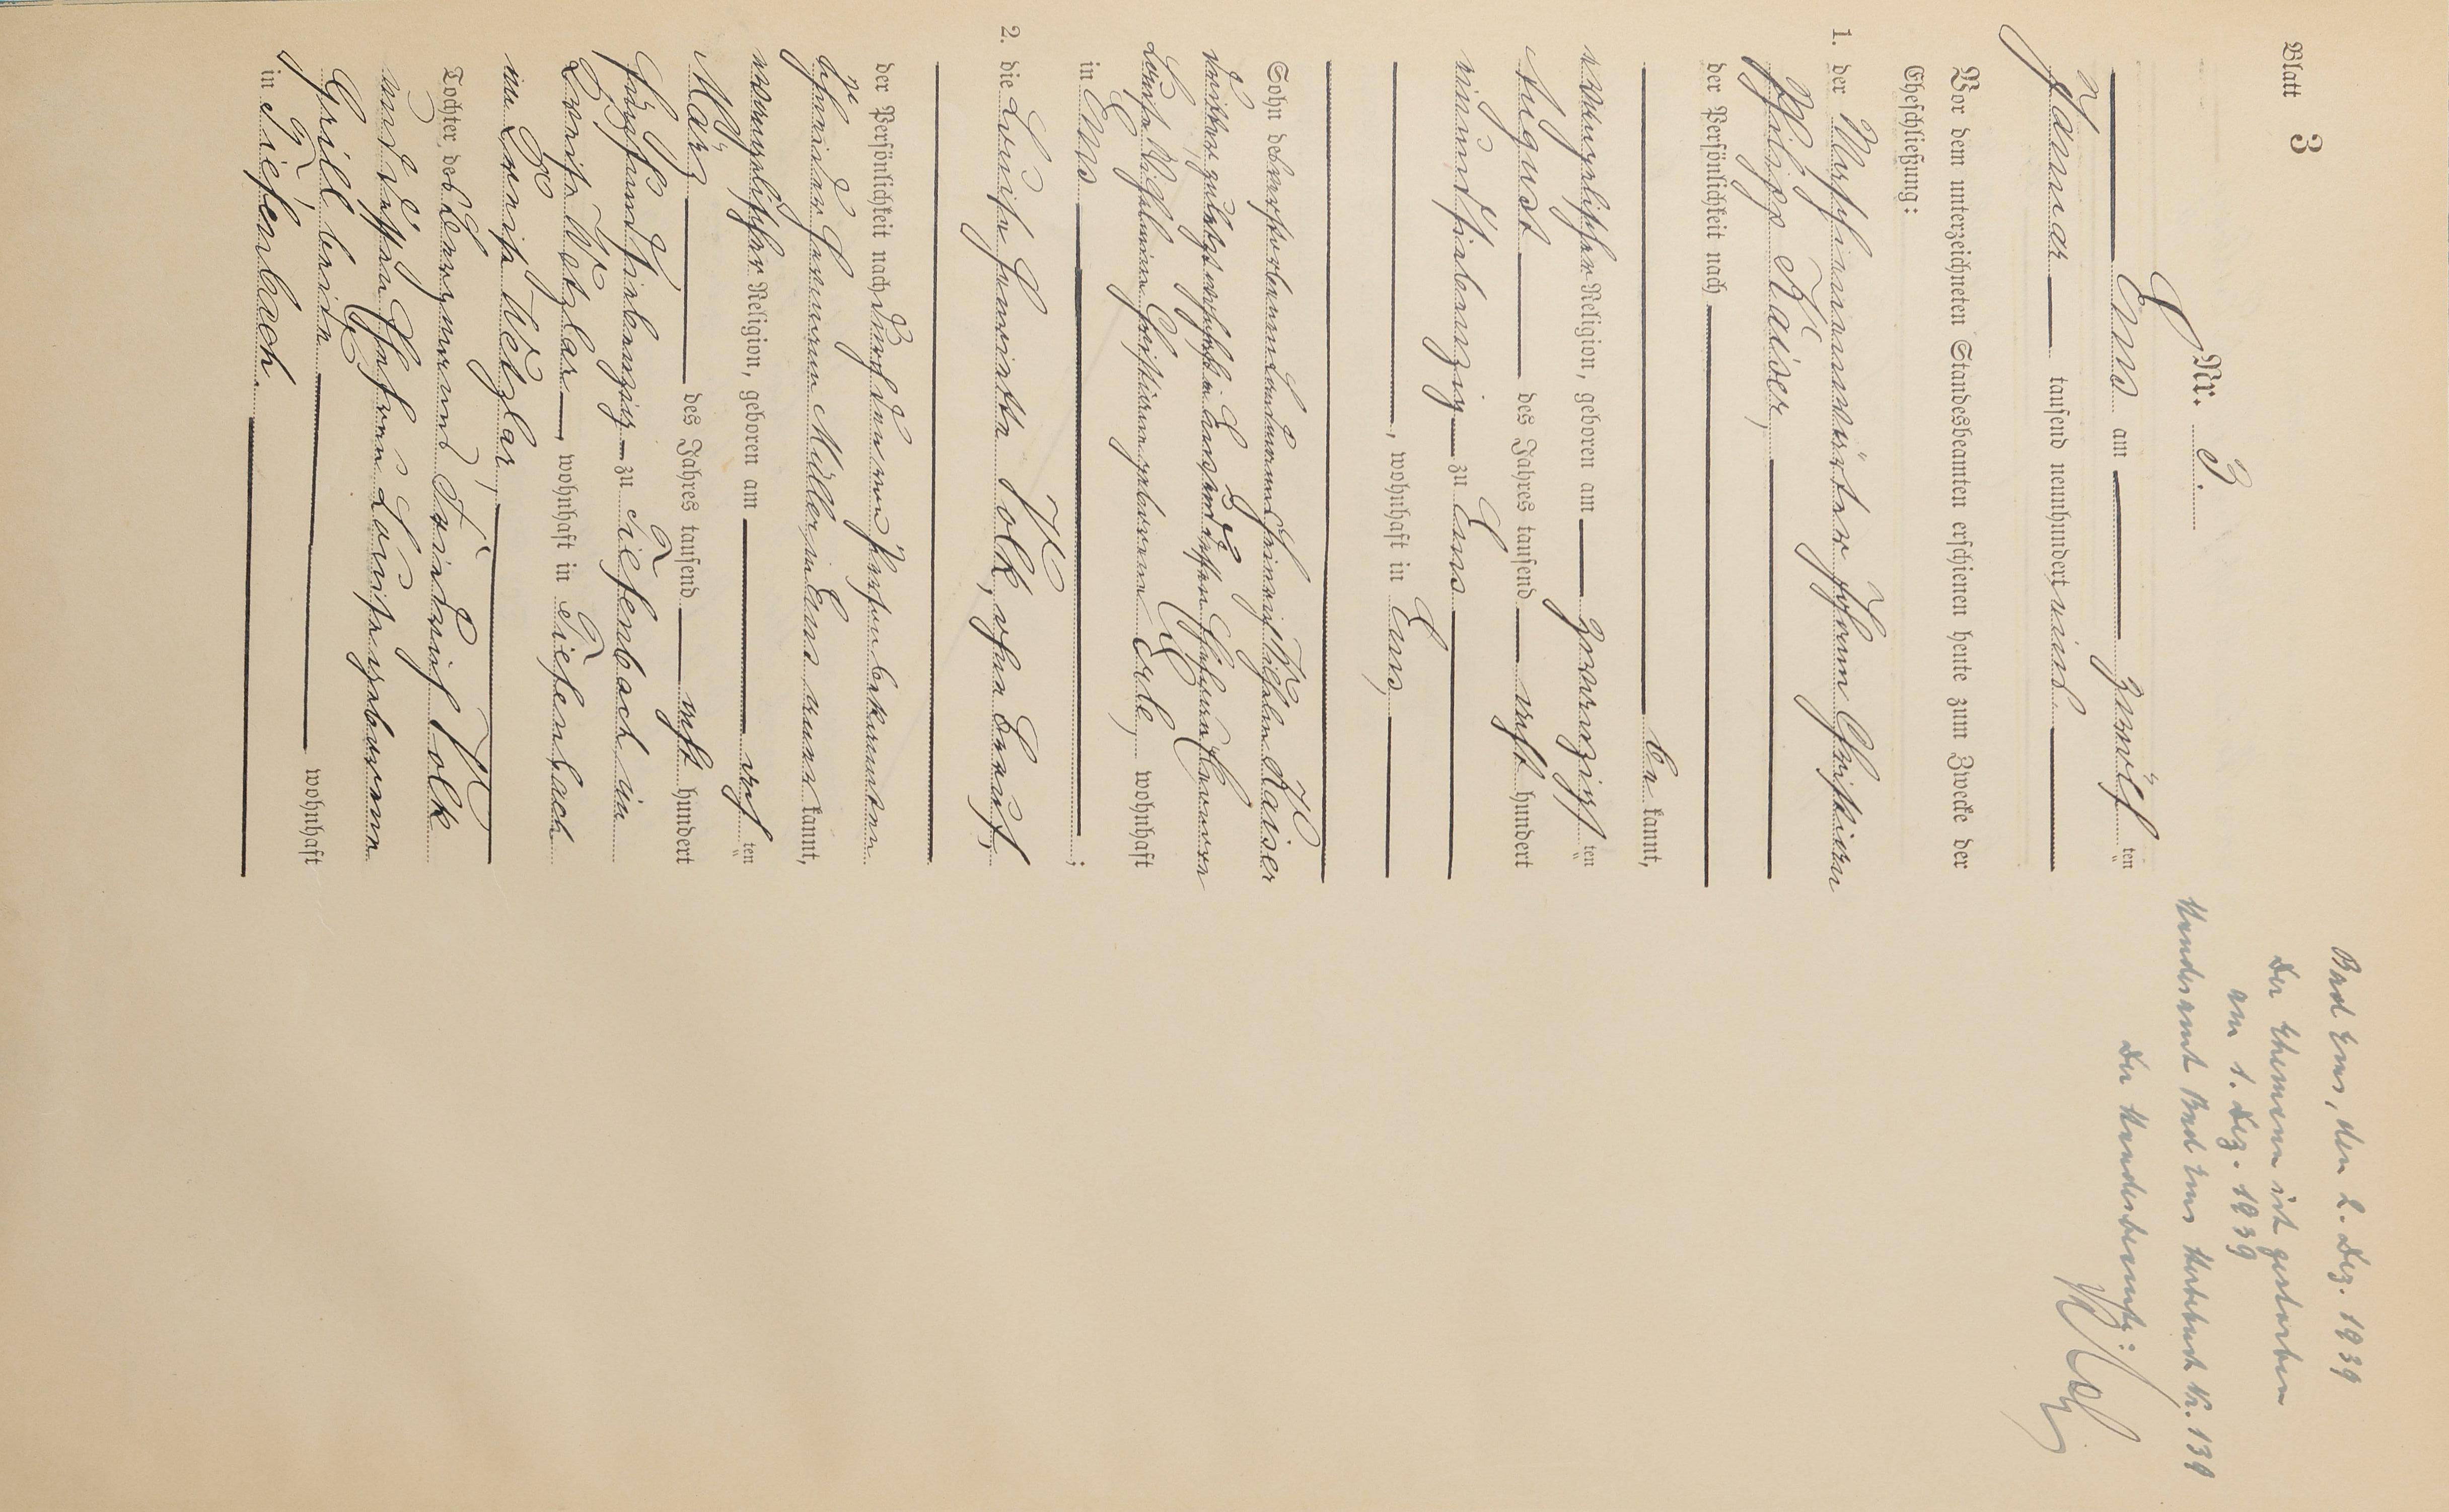 Blatt 3
Nr. 3.
Ems am zwölften
Januar tausend neunhundert eins
Vor dem unterzeichneten Standesbeamten erschienen heute zum Zwecke der
Eheschließung:
1. der Johann Christian
Philipp Kaiser,
der Persönlichkeit nach
be kannt,
evangelischer Religion, geboren am zwanzigsten
August des Jahres tausend acht hundert
einundsiebenzig zu Ems
, wohnhaft in Ems,
Sohn des verstorbenen Heinrich Wilhelm Kaiser
zuletzt wohnhaft in Ems und dessen Ehefrau
Wilhelmine Christiane geborenen wohnhaft
in Ems ;
2. die Luise Henriette Volk, ohne Beruf,
der Persönlichkeit nach durch den von Person bekannten
Hermann Müller in Ems aner kannt,
evangelischer Religion, geboren am acht ten
März des Jahres tausend acht hundert
fünfundsiebenzig zu Tiefenbach im
Kreise Wetzlar, wohnhaft in Tiefenbach
im Kreise Wetzlar,
Tochter des Bergmann Friedrich Volk
und dessen Ehefrau Louise geborenen
Grill beide wohnhaft
in Tiefenbach.
Bad Ems, den 2. Dez. 1939
Der Ehemann ist gestorben
am 1. Dez. 1939
Standesamt Bad Ems Sterbebuch Nr. 139
Der Standesbeamte: